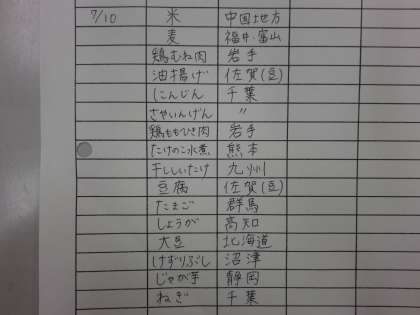 7/10 米 中国地方
麦 福井・富山
鶏むね肉 岩手
油揚げ 佐賀(豆)
にんじん 千葉
さやいんげん 〃
鶏ももひき肉 岩手
たけのこ水煮 熊本
干ししいたけ 九州
豆腐 佐賀(豆)
たまご 群馬
しょうが 高知
大豆 北海道
けずりぶし 沼津
じゃが芋 静岡
ねぎ 千葉